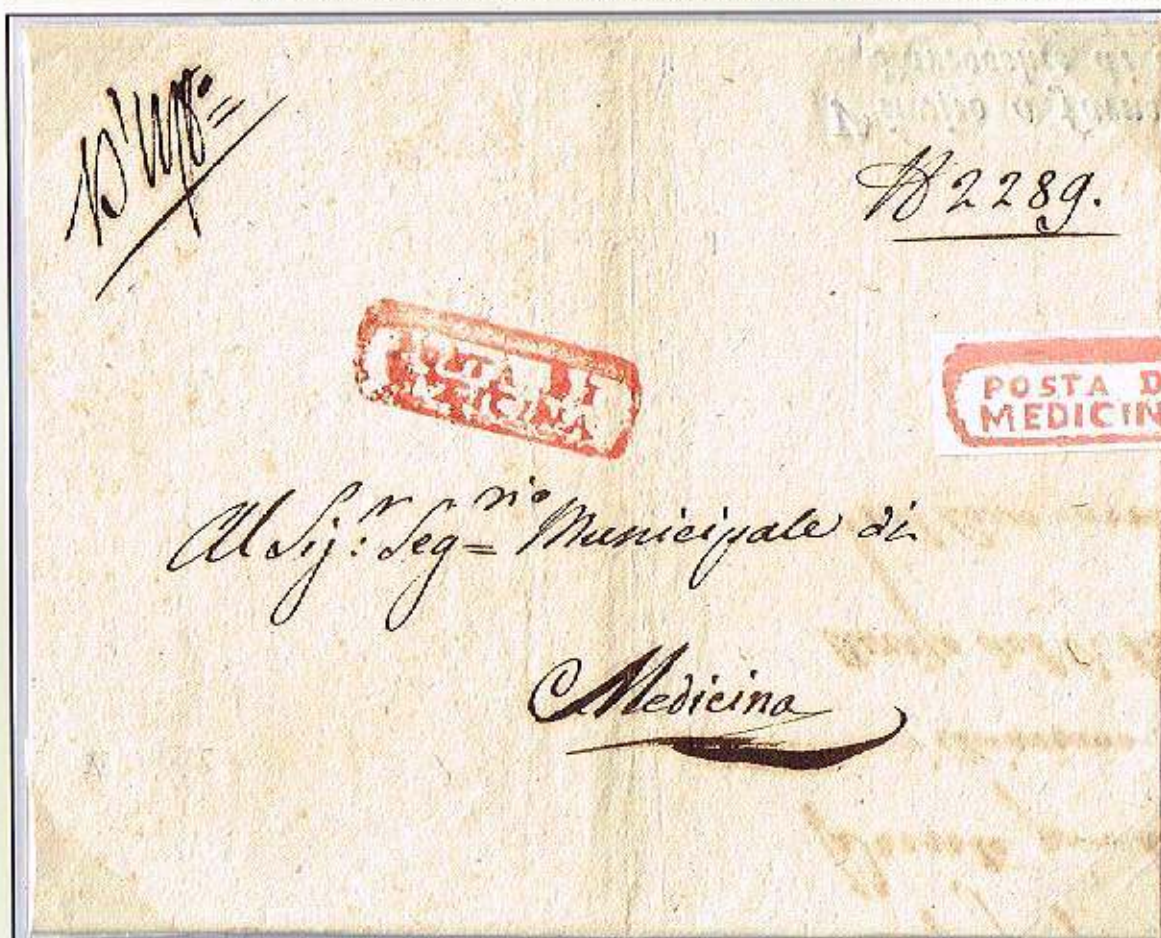 D'Uffo=
N 2289.
POSTA DI
MEDICINA
POSTA D
MEDICIN
Al Sig:r Seg=rio Municipale di
Medicina